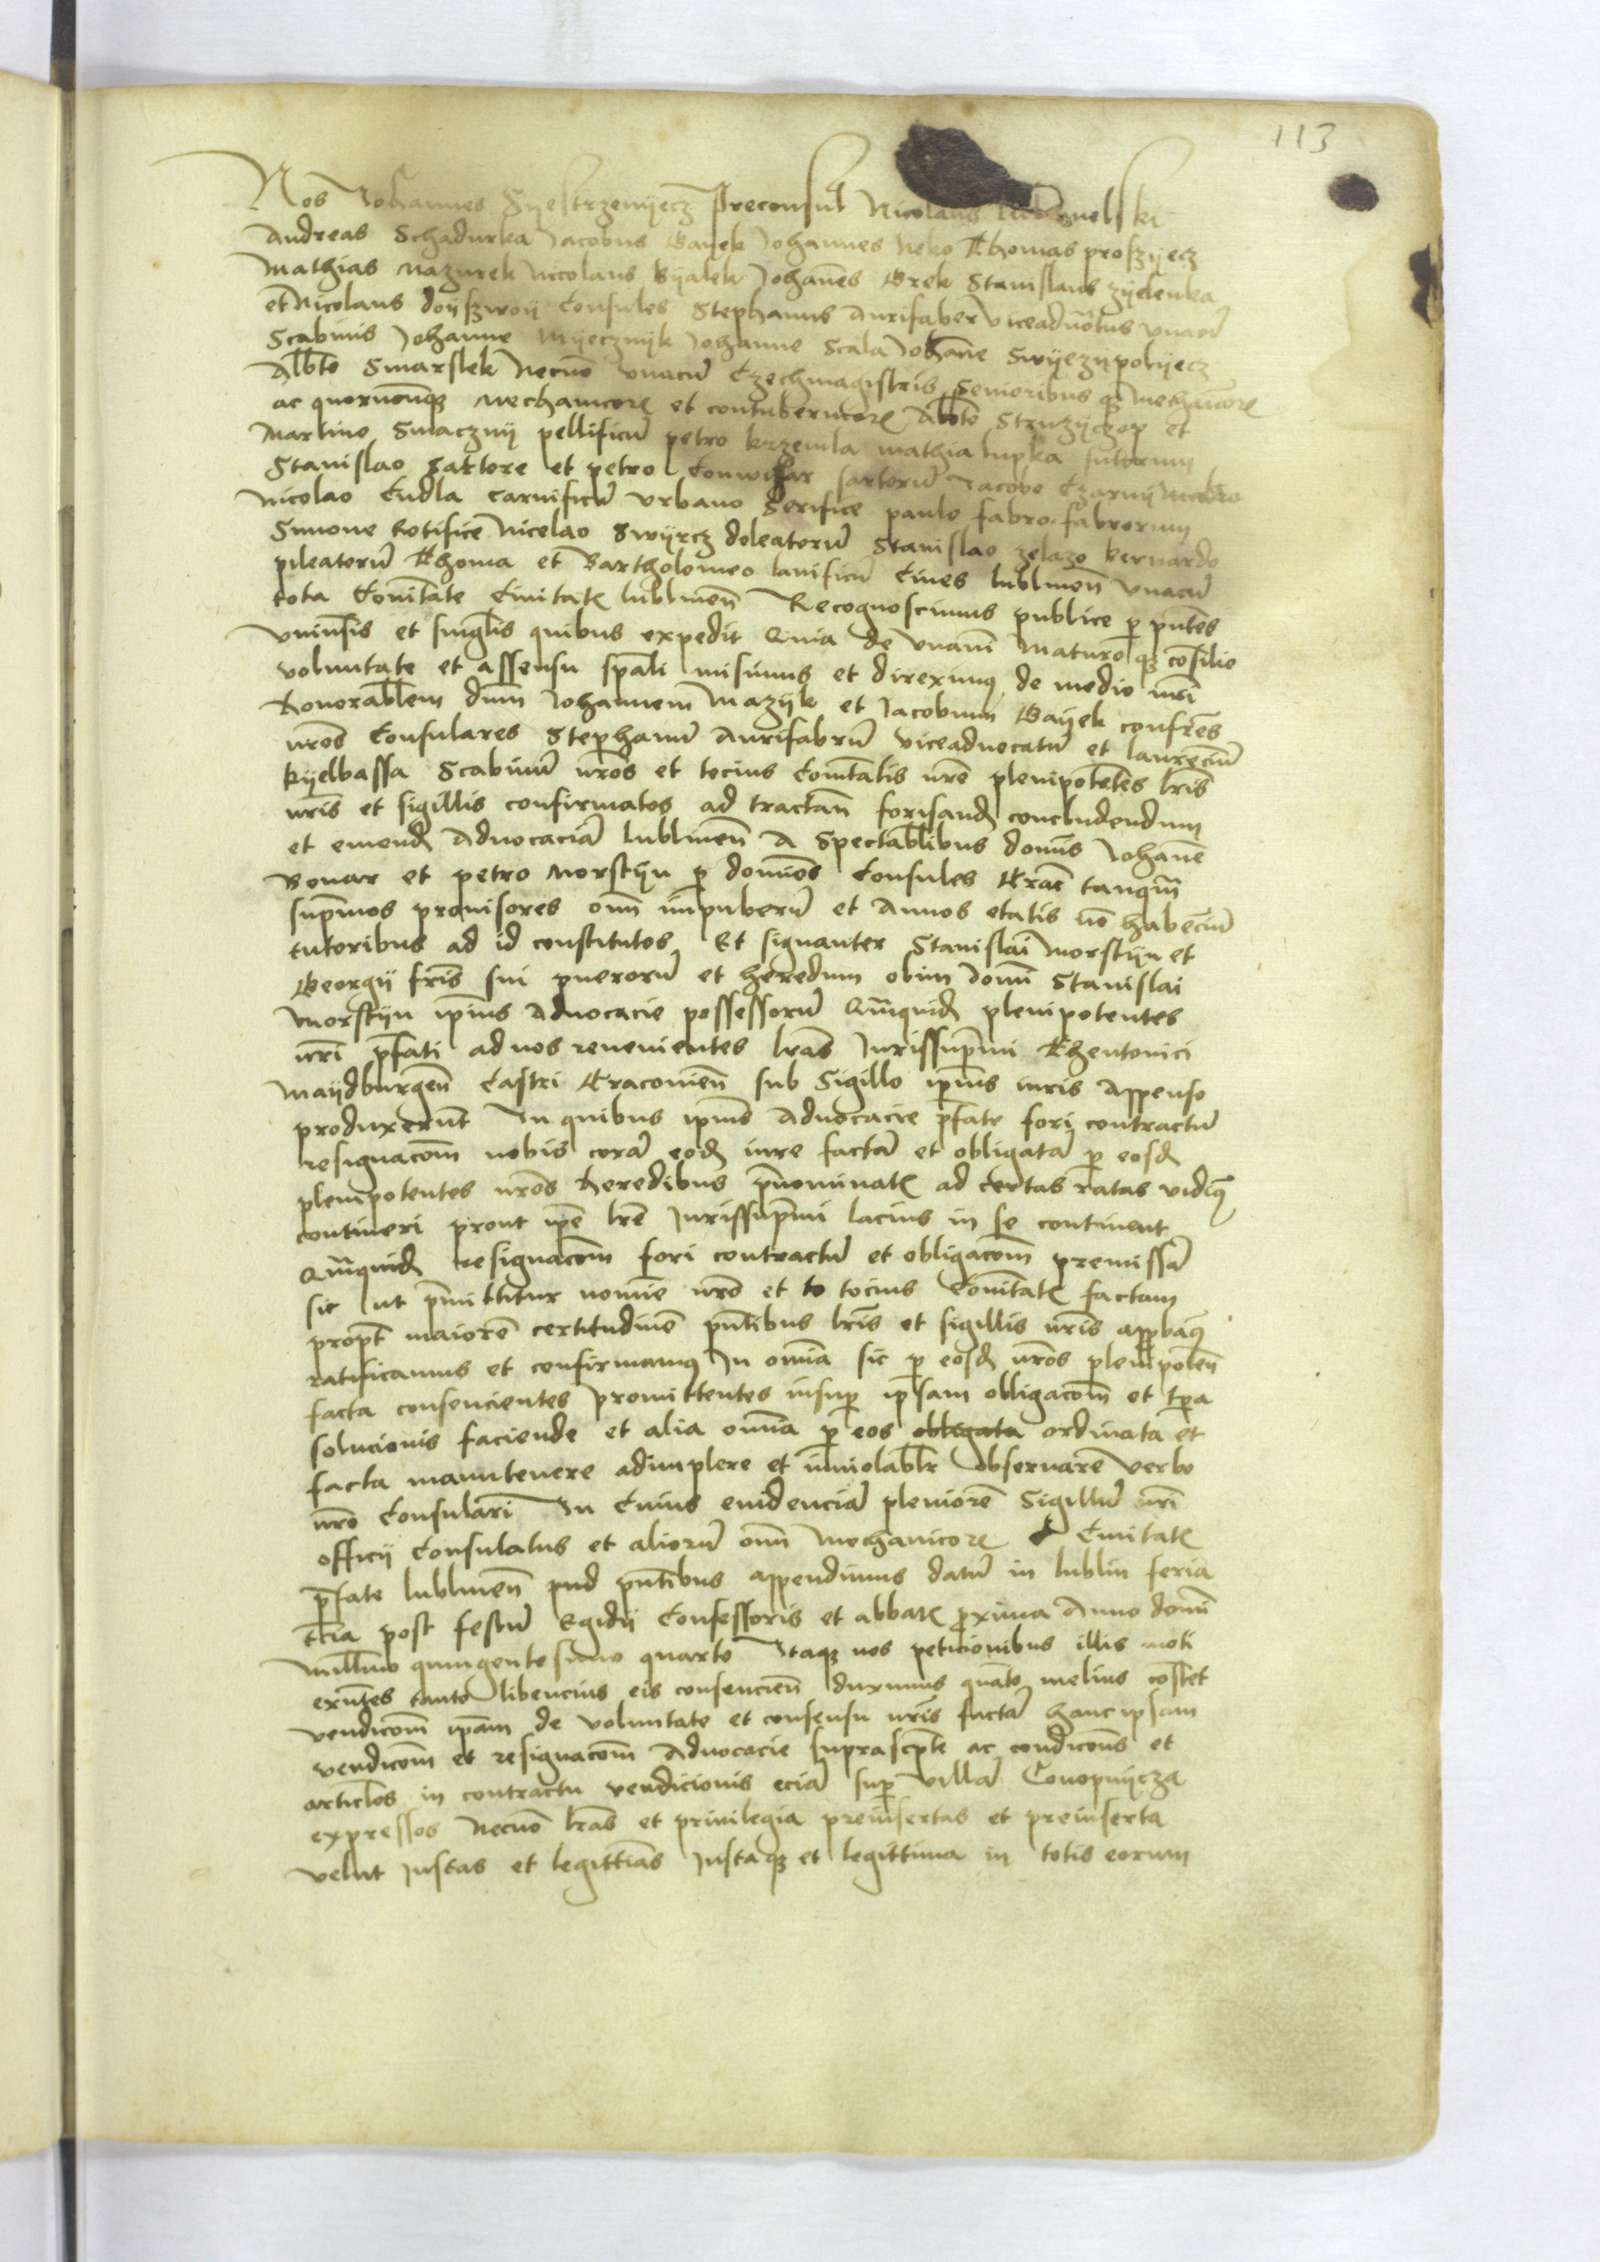 113
Nos Johannes Syestrzemyecz Preconsul Nicolaus
Andreas Schadurka Jacobus Gayek Johannes Neko Thomas proszyecz
Mathias Mazurek Nicolaus byalek Johānes Grek Stanislaus zyelenka
et Nicolaus doyszwoij Consules Stephanus Aurifaber viceaduotus vnacū
Scabinis Johanne Myecznyk Johanne Scala Johāne Swyezypolyecz
Albto Smarslek Necnō vnacū Czechmagistris Senioribus
ac quorucūqꝫ Mechanicorꝫ et contubernorꝫ Albto Struzyczop et
Martino Smacznij pellificū petro krzemla mathia lupka sutorum
Stanislao Sartore et petro sartorū Jacobo Czarnij
Nicolao Cudla carnificū Vrbano Serifice paulo fabro fabrorum
Simone Rotifice Nicolao Swyrcz doleatorū Stanislao zelazo bernardo
pileatorū Thoma et Bartholomeo lanificū Ciues lublinen̄ vnacū
tota Cōitate Ciuitatꝫ lublinen̄ Recognoscimus publice ꝑ pn̄tes
vniūsis et singl̄is quibus expedit Quia de vnani Maturoqꝫ cōsilio
voluntate et assensu sp̄ali misimus et direximꝰ de medio nr̄i
honorablem dn̄m Johannem Mazyk et Jacobum Gayek confr̄es
nr̄os Consulares Stephanū Aurifabrū viceaduocatū et laurēciū
kyelbassa Scabinū nr̄os et tocius Cōitatis nr̄e plenipotētes lr̄is
nr̄is et sigillis confirmatos ad tractan̄ forisandꝫ concludendum
et emendꝫ Aduocaciā lublinen̄ A Spectablibus dominis Johāne
Bonar et petro Morstyn ꝑ dominos Consules Crac̄ tanqm̄
supmos prouisores om̄ impuberū et Annos etatis nō habēciū
tutoribus ad id constitutos Et signanter Stanislai Morstyn et
Georgij fr̄is sui puerorū et heredum olim domī Stanislai
Morstyn ip̄ius Aduocacie possessorū Qm̄quidꝫ plenipotentes
nr̄i p̄fati ad nos reuenientes lr̄as Jurissupmi Theutonici
Maydburgen̄ Castri Cracouien̄ sub Sigillo ip̄ius iuris Appenso
produxerunt In quibus ip̄ius Aduocacie p̄fate fori contractū
resignacōm nobis corā eodꝫ iure factā et obligatā ꝑ eosdꝫ
plenipotentes nr̄os heredibus p̄nominatꝫ ad certas ratas vidimꝰ
contineri prout ip̄e lr̄e Jurissupmi lacius in se continent
Qm̄quidꝫ resignacōm fori contractū et obligacōm premissā
sic ut p̄mittitur nomīe nr̄o et to tocius Cōitatꝫ factam
propt̄ maiorē certitudinē pn̄tibus lr̄is et sigillis nr̄is appbamꝰ
ratificamus et confirmamꝰ In omīa sic ꝑ eosdꝫ nr̄os plenipoten̄
facta consencientes promittentes insup ip̄sam obligacōm et tp̄a
solucionis faciende et alia omīa ꝑ eos obligata ordinata et
facta manutenere adimplere et inuiolablr obseruare verbo
nr̄o Consulari In Cuius euidenciā pleniorē Sigillū nr̄i
officij Consulatus et aliorū om̄ Mechanicorꝫ Ciuitatꝫ
p̄fate lublinen̄ pn̄tibus appendimus datū in lublin feria
t̄cia post festū Egidij Confessoris et abbatꝫ proxima Anno domī
Millīmo quingentesimo quarto Itaqꝫ nos peticionibus illis moti
exn̄tes tanto libencius eis consencien̄ duximus quāto melius cōstet
vendicōm ip̄am de voluntate et consensu nr̄is factā hanc ipsam
vendicōm et resignacōm Aduocacie suprascpte ac condicōnes et
articlos in contractu vendicionis eciā sup villā Conopnycza
expressos Necnō lr̄as et priuilegia preinsertas et preinserta
velut Justas et legittīas Justaqꝫ et legittima in totis eorum